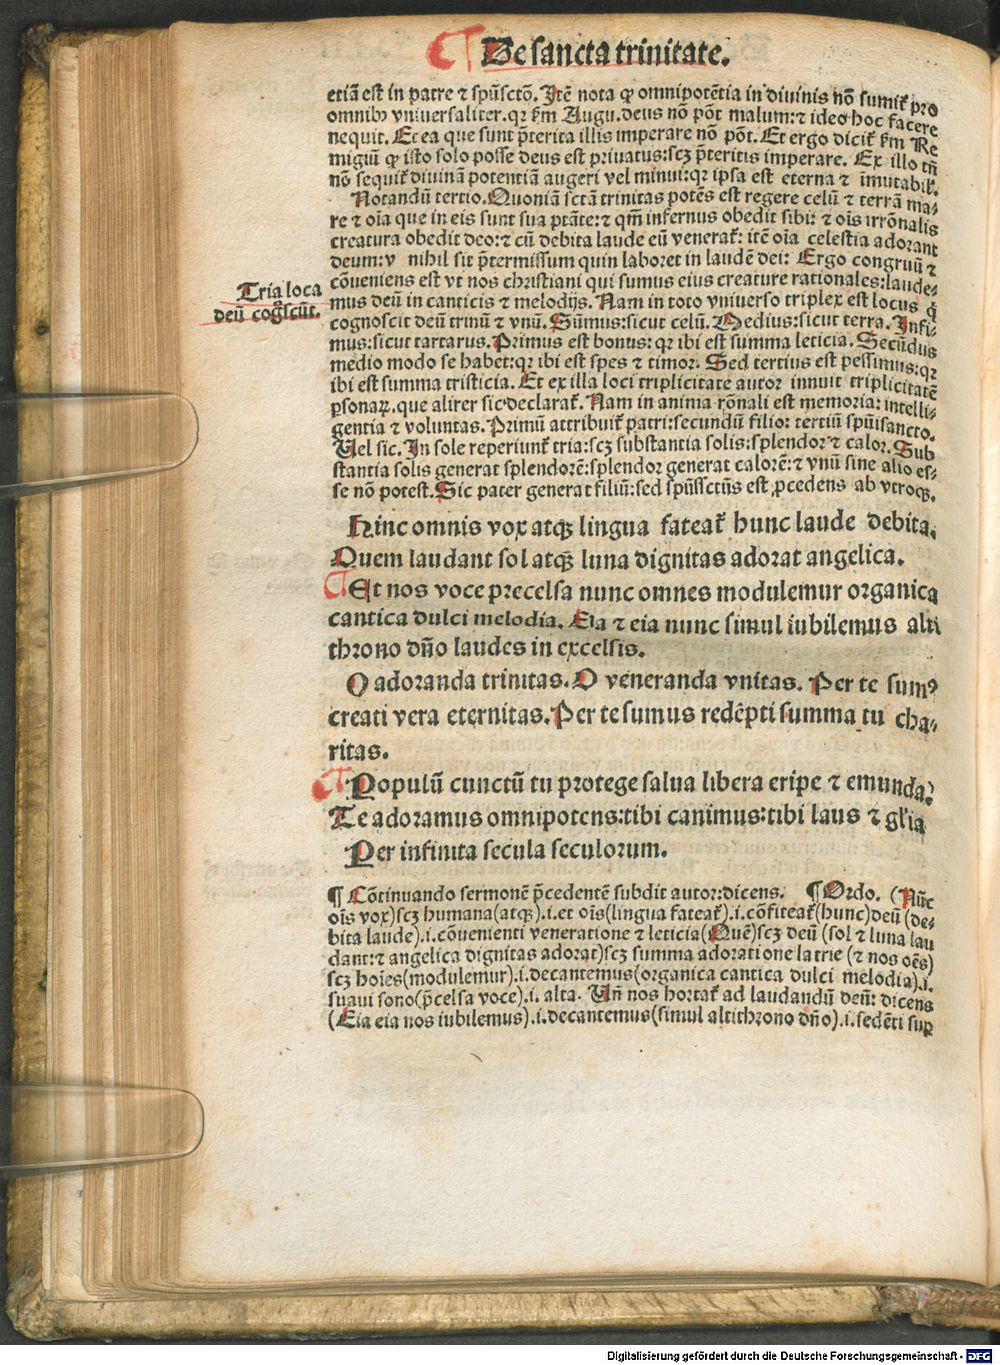 ¶ De sancta trinitate.
etiã est in patre ⁊ spũsctõ. Itẽ nota ꝙ omnipotẽtia in diuinis nõ sumit᷑ pro
omnibꝰ vniuersaliter. qꝛ ẜm Augu. deus nõ põt malum: ⁊ ideo hoc facere
nequit. Et ea que sunt p̃terita illis imperare nõ põt. Et ergo dicit᷑ ẜm Re
migiũ ꝙ isto solo posse deus est priuatus: scꝫ p̃teritis imperare. Ex illo tñ
nõ sequit᷑ diuinã potentiã augeri vel minui: qꝛ ipsa est eterna ⁊ ĩmutabil᷑.
Notandũ tertio. Quoniã sctã trinitas potẽs est regere celũ ⁊ terrã ma⸗
re ⁊ oĩa que in eis sunt sua ptãte: ⁊ qm̃ infernus obedit sibi: ⁊ oĩs irrõnalis
creatura obedit deo: ⁊ cũ debita laude eũ venerat᷑: itẽ oĩa celestia adorant
deum: v nihil sit p̃termissum quin laboret in laudẽ dei: Ergo congruũ ⁊
cõueniens est vt nos christiani qui sumus eius creature rationales: laude⸗
Tria loca
deũ cogͣscũt.
mus deũ in canticis ⁊ melodijs. Nam in toto vniuerso triplex est locus qͥ
cognoscit deũ trinũ ⁊ vnũ. Sũmus: sicut celũ. Medius: sicut terra. Infi⸗
mus: sicut tartarus. Primus est bonus: qꝛ ibi est summa leticia. Secũdus
medio modo se habet: qꝛ ibi est spes ⁊ timor. Sed tertius est pessimus: qꝛ
ibi est summa tristicia. Et ex illa loci triplicitate autor innuit triplicitatẽ
ꝑsonaꝝ. que aliter sic declarat᷑. Nam in anima rõnali est memoria: intelli⸗
gentia ⁊ voluntas. Primũ attribuit᷑ patri: secundũ filio: tertiũ spũisancto.
Uel sic. In sole reperiunt᷑ tria: scꝫ substantia solis: splendor ⁊ calor. Sub
stantia solis generat splendorẽ: splendor generat calorẽ: ⁊ vnũ sine alio es⸗
se nõ potest. Sic pater generat filiũ: sed spũssctũs est ꝓcedens ab vtroqꝫ.
Hinc omnis vox atqꝫ lingua fateat᷑ hunc laude debita.
Quem laudant sol atqꝫ luna dignitas adorat angelica.
¶ Et nos voce precelsa nunc omnes modulemur organica
cantica dulci melodia. Eia ⁊ eia nunc simul iubilemus alti
throno dño laudes in excelsis.
O adoranda trinitas. O veneranda vnitas. Per te sumꝰ
creati vera eternitas. Per te sumus redẽpti summa tu cha⸗
ritas.
¶ Populũ cunctũ tu protege salua libera eripe ⁊ emunda.
Te adoramus omnipotens: tibi canimus: tibi laus ⁊ gľia
Per infinita secula seculorum.
¶ Cõtinuando sermonẽ p̃cedentẽ subdit autor: dicens. ¶ Ordo. (Nũc
oĩs vox) scꝫ humana (atqꝫ) .i. et oĩs (lingua fateat᷑) .i. cõfiteat᷑ (hunc) deũ (de⸗
bita laude) .i. cõuenienti veneratione ⁊ leticia (Quẽ) scꝫ deũ (sol ⁊ luna lau
dant: ⁊ angelica dignitas adorat) scꝫ summa adoratione latrie (⁊ nos oẽs)
scꝫ hoĩes (modulemur) .i. decantemus (organica cantica dulci melodia) .i.
suaui sono (p̃celsa voce) .i. alta. Uñ nos hortat᷑ ad laudandũ deũ: dicens
(Eia eia nos iubilemus) .i. decantemus (simul altithrono dño) .i. sedẽti suꝑ
Digitalisierung gefördert durch die Deutsche Forschungsgemeinschaft - DFG